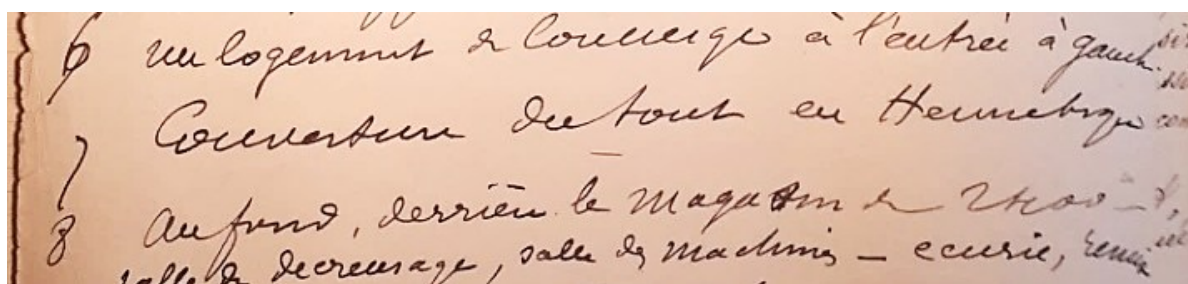 6 un logement de Concierge à l'entrée à gauch
7 Couverture du tout en Hennebique
8 Au fond, derrière le magasin de
salle de decreusage, salle des machines – ecurie, remise